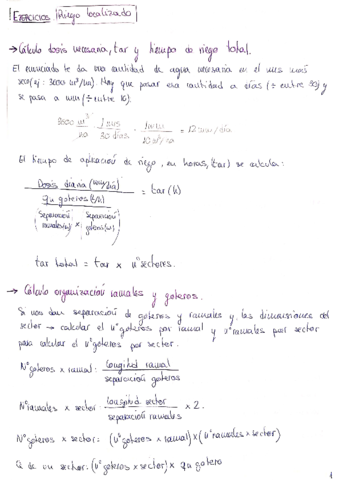 EJERCICIOS Riego localizado
→ Cálculo dosis necesaria, tar y tiempo de riego total.
El enunciado te da una cantidad de agua necesaria en el mes más
seco (ej: 3600 m³/ha). Hay que pasar esa cantidad a días (÷ entre 30) y
se pasa a mm (÷ entre 10).
3600 m³/ha · 1 mes/30 días · 1 mm/10 m³/ha = 12 mm/día
El tiempo de aplicación de riego, en horas, (tar) se calcula:
Dosis diaria (mm/día)
qu goteros (l/h)
(Separación ramales(m) x Separación goteros(m))
= tar (h)
tar total = tar x nº sectores.
→ Cálculo organización ramales y goteros.
Si nos dan separación de goteros y ramales y las dimensiones del
sector → calcular el nº goteros por ramal y nº ramales por sector
para calcular el nº goteros por sector.
Nº goteros x ramal: longitud ramal / separación goteros
Nº ramales x sector: longitud sector / separación ramales x 2.
Nº goteros x sector: (nº goteros x ramal) x (nº ramales x sector)
Q de un sector: (nº goteros x sector) x qu gotero
1